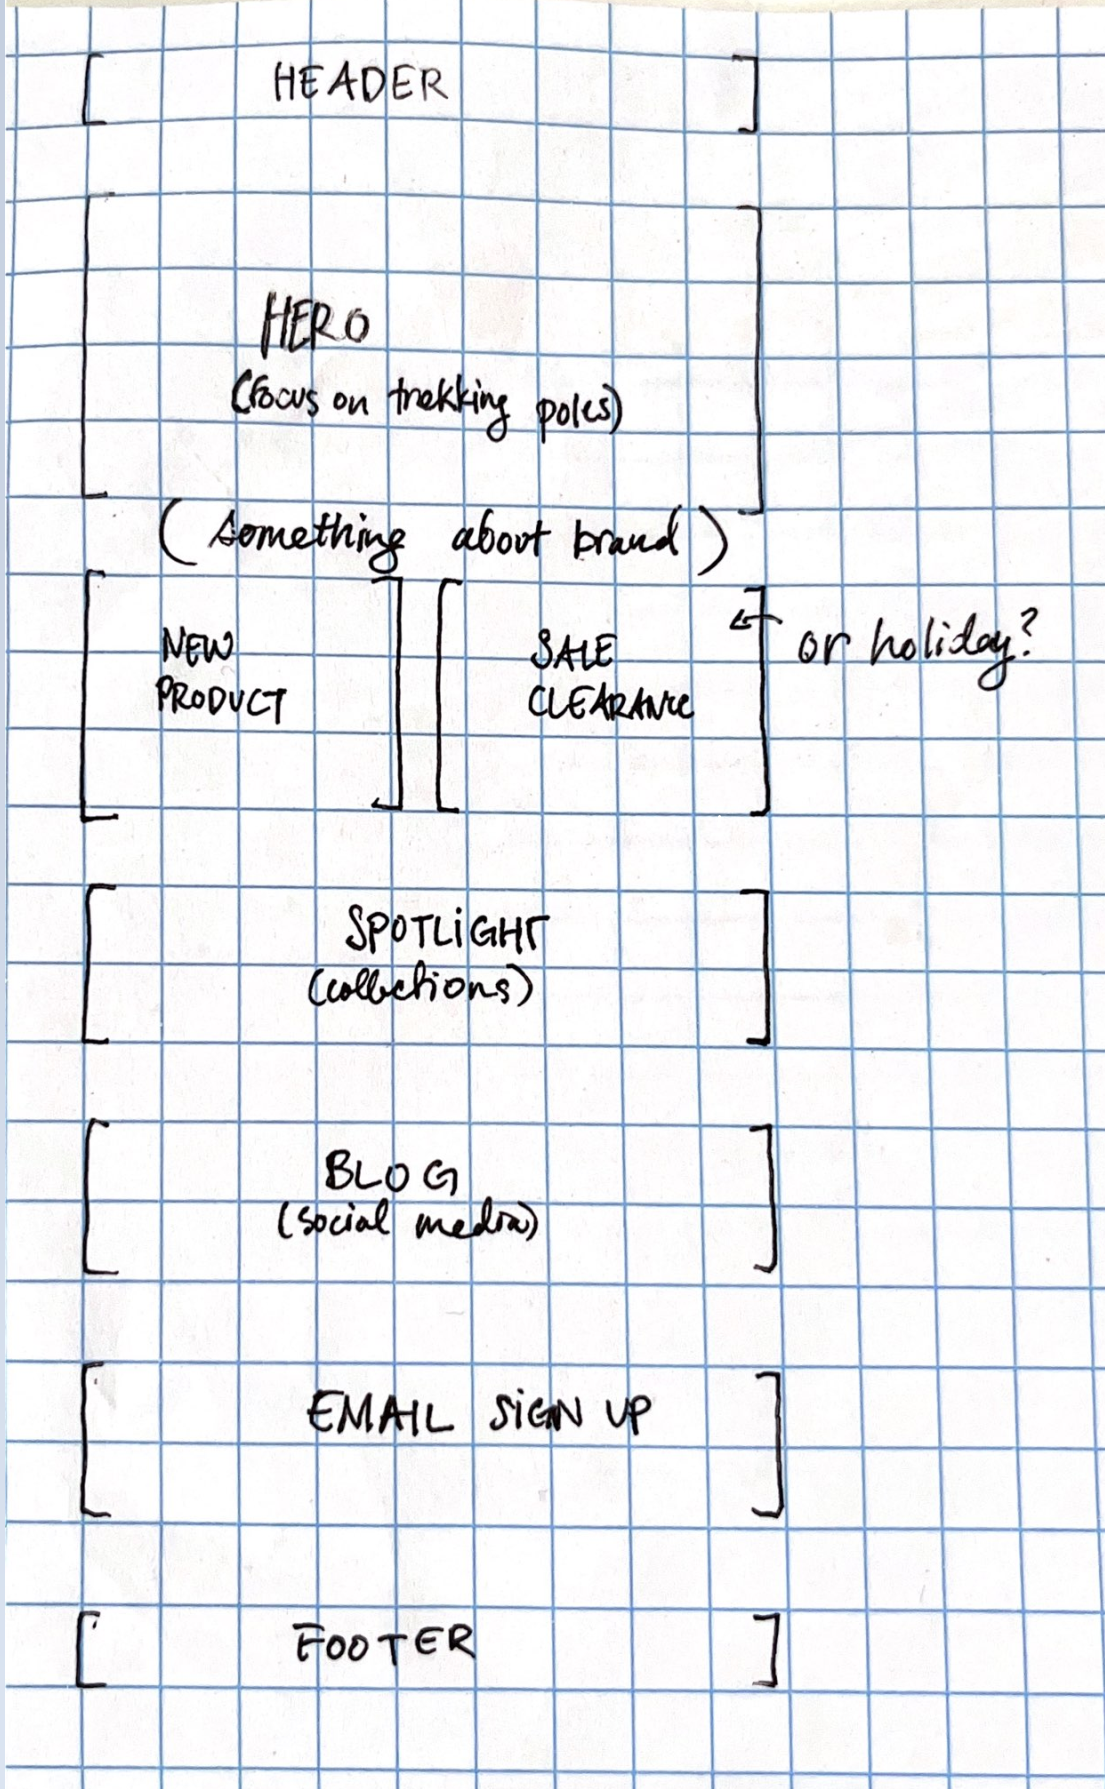 HEADER
HERO
(focus on trekking poles)
(something about brand)
NEW
PRODUCT
SALE
CLEARANCE
or holiday?
SPOTLiGHT
(collections)
BLOG
(social media)
EMAIL SiGN UP
FOOTER